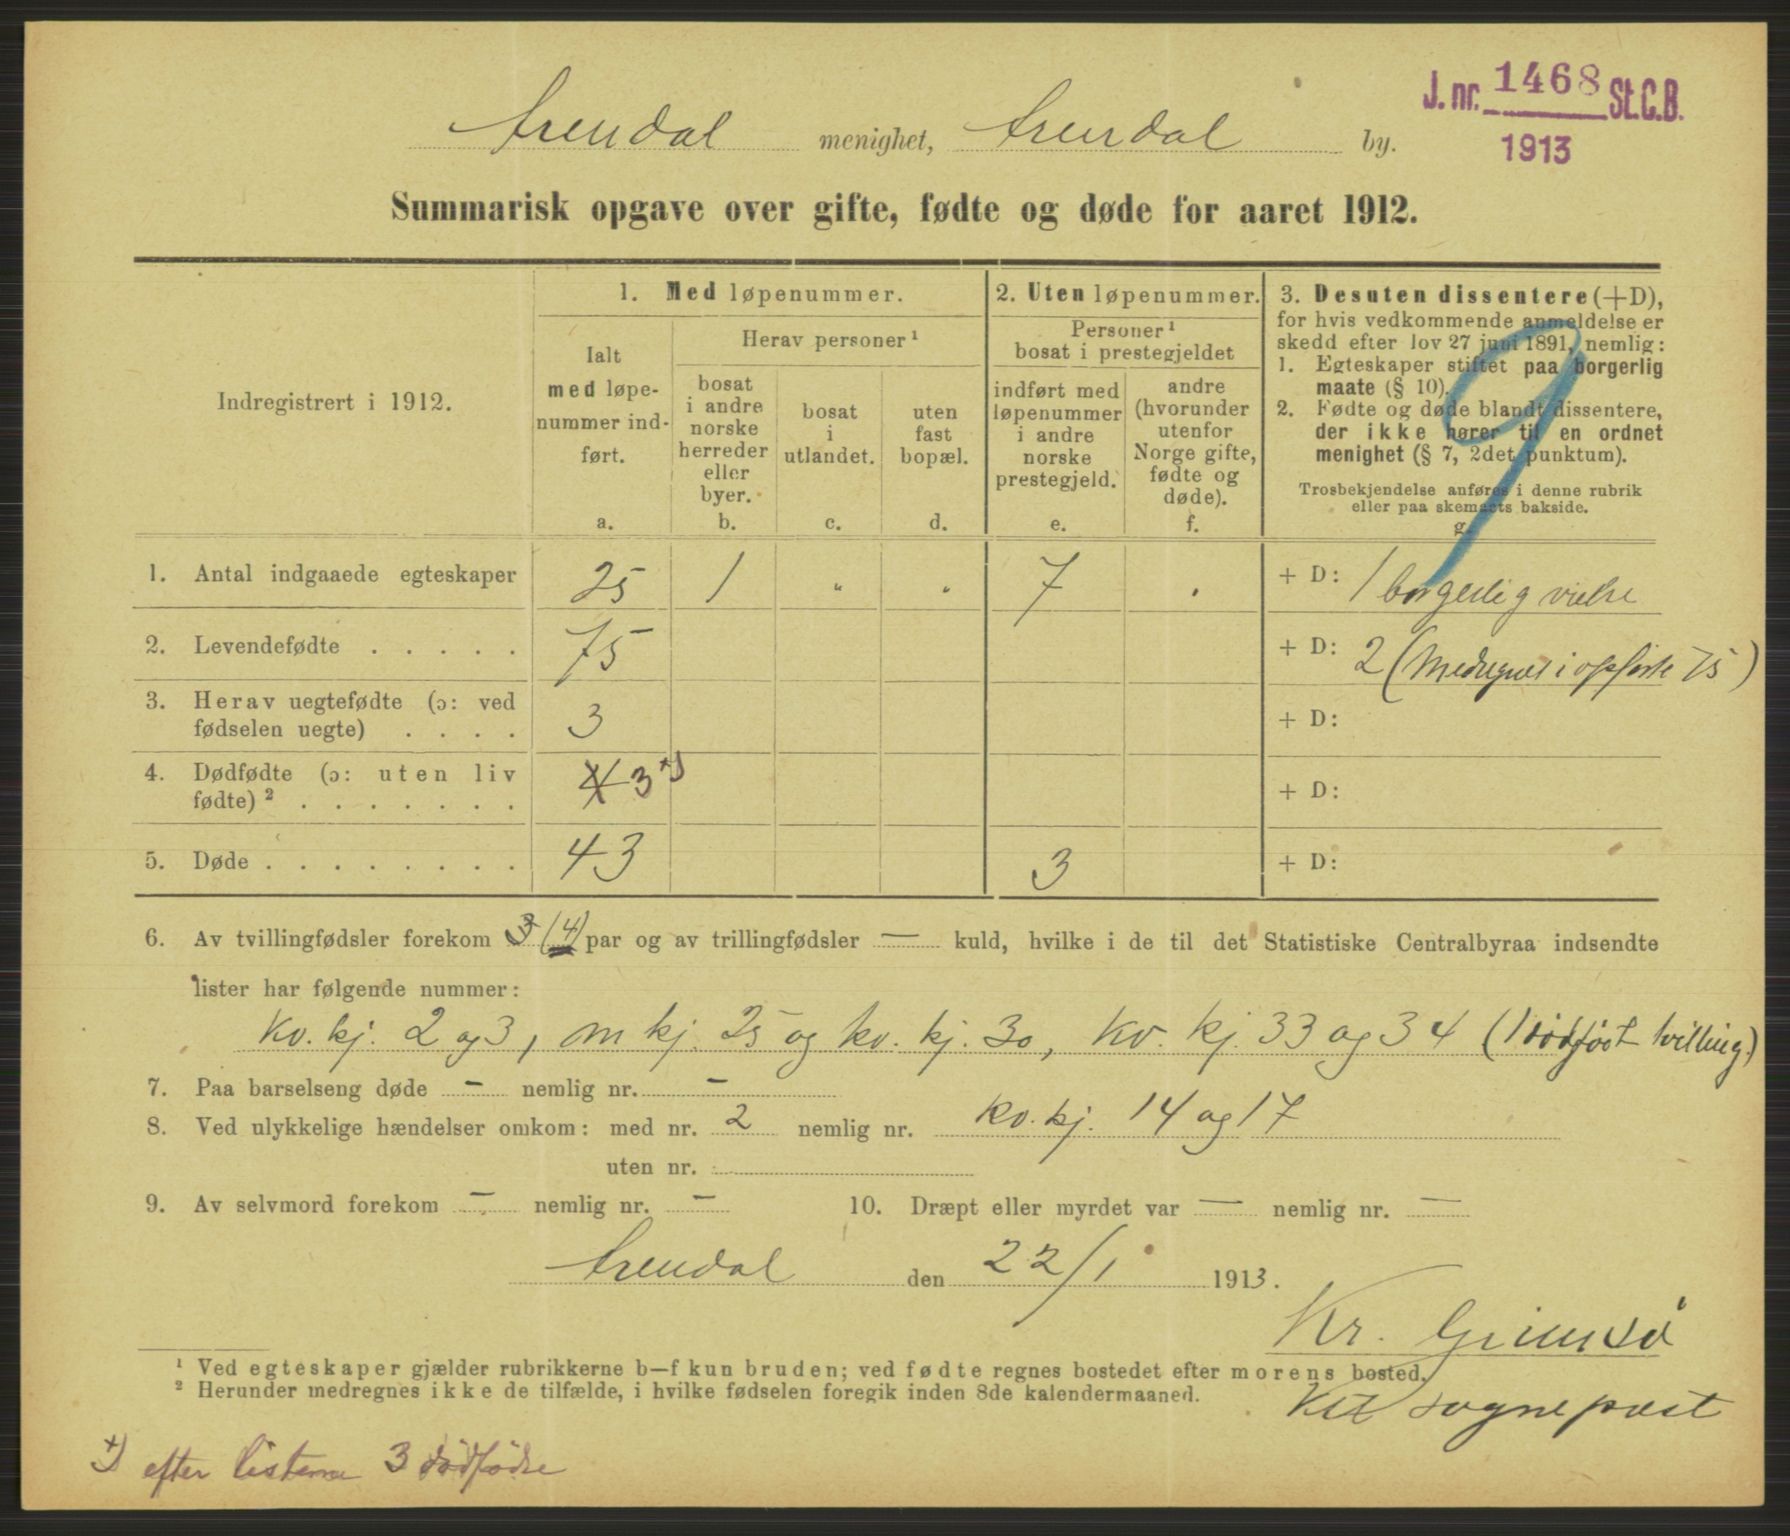 J. nr. 1468 St.C.B.
1913
Arendal menighet, Arendal by.
Summarisk opgave over gifte, fødte og døde for aaret 1912.
Indregistrert i 1912.
1. Med løpenummer.
Ialt
med løpe-
nummer ind-
ført.
a.
Herav personer ¹
bosat
i andre
norske
herreder
eller
byer.
b.
bosat
i
utlandet.
c.
uten
fast
bopæl.
d.
2. Uten løpenummer.
Personer ¹
bosat i prestegjeldet
indført med
løpenummer
i andre
norske
prestegjeld.
e.
andre
(hvorunder
utenfor
Norge gifte,
fødte og
døde).
f.
3. Desuten dissentere (+D),
for hvis vedkommende anmeldelse er
skedd efter lov 27 juni 1891, nemlig:
1. Egteskaper stiftet paa borgerlig
maate (§ 10).
2. Fødte og døde blandt dissentere,
der ikke hører til en ordnet
menighet (§ 7, 2det punktum).
Trosbekjendelse anføres i denne rubrik
eller paa skemaets bakside.
g.
9
1. Antal indgaaede egteskaper 25 1 " " 7 . + D: 1 borgerlig vielse
2. Levendefødte . . . . . 75 + D: 2 (Medregnet i opførte 75)
3. Herav uegtefødte (ɔ: ved
fødselen uegte) . . . . 3 + D:
4. Dødfødte (ɔ: uten liv
fødte) ² . . . . . . . 3 +) + D:
5. Døde . . . . . . . . 43 3 + D:
6. Av tvillingfødsler forekom 3 (4) par og av trillingfødsler — kuld, hvilke i de til det Statistiske Centralbyraa indsendte
lister har følgende nummer:
Kv. kj. 2 og 3, m kj. 25 og kv. kj. 30, Kv. kj. 33 og 34 (1 dødfødt tvilling.)
7. Paa barselseng døde — nemlig nr. —
8. Ved ulykkelige hændelser omkom: med nr. 2 nemlig nr. kv. kj. 14 og 17
uten nr.
9. Av selvmord forekom — nemlig nr. — 10. Dræpt eller myrdet var — nemlig nr. —
Arendal den 22/1 1913.
Kr. Grimsø
Kst sognepræst
¹ Ved egteskaper gjælder rubrikkerne b—f kun bruden; ved fødte regnes bostedet efter morens bosted.
² Herunder medregnes ikke de tilfælde, i hvilke fødselen foregik inden 8de kalendermaaned.
+) efter listerne 3 dödfödte